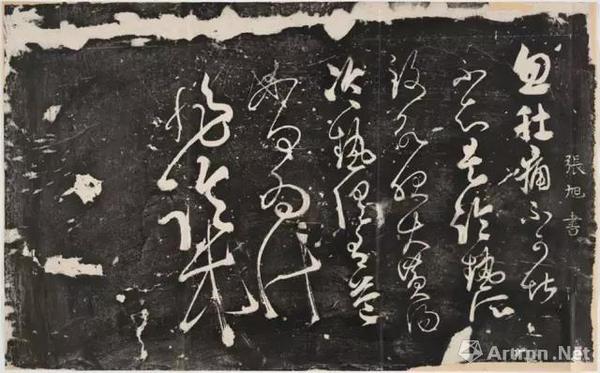 張旭書
忽肚痛不可堪
不知是冷熱所
致欲服大黄湯
冷熱俱有益
如何為計
非臨床
Artron.Net